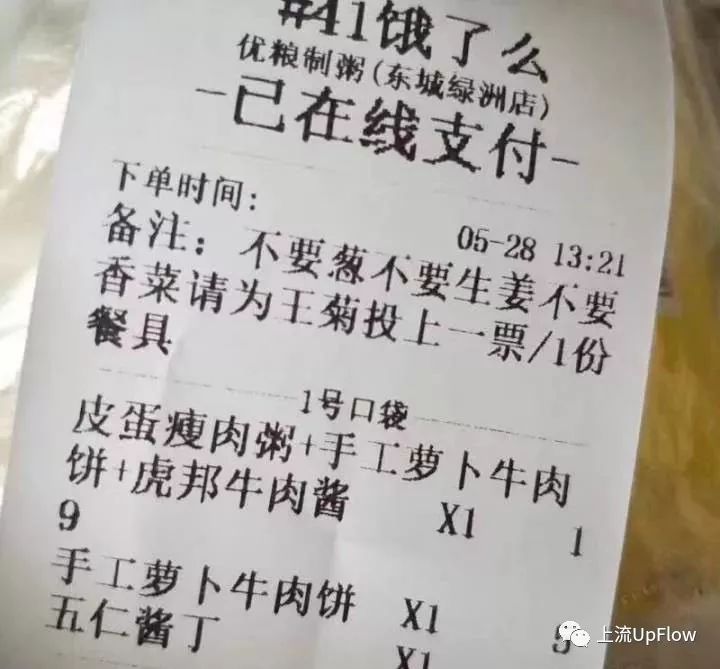 #41饿了么
优粮制粥(东城绿洲店)
-已在线支付-
下单时间:
05-28 13:21
备注: 不要葱不要生姜不要
香菜请为王菊投上一票/1份
餐具
1号口袋
皮蛋瘦肉粥+手工萝卜牛肉
饼+虎邦牛肉酱 X1 1
9
手工萝卜牛肉饼 X1
五仁酱丁 X1
上流UpFlow